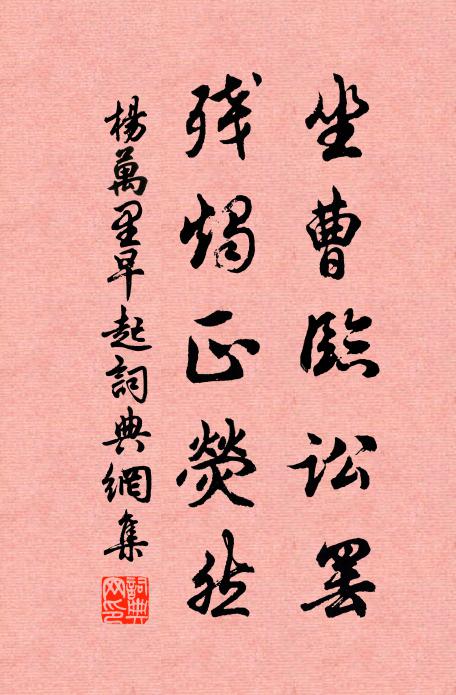 坐曹臨訟罷
残燭正熒然
楊萬里早起詞典網集
詞典网印